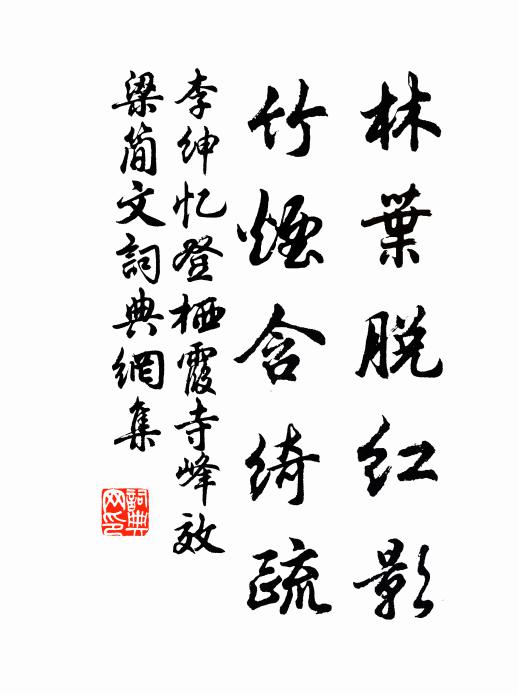 林葉脱红影
竹煙含绮疏
李绅忆登栖霞寺峰效
梁简文詞典網集
詞典
网印